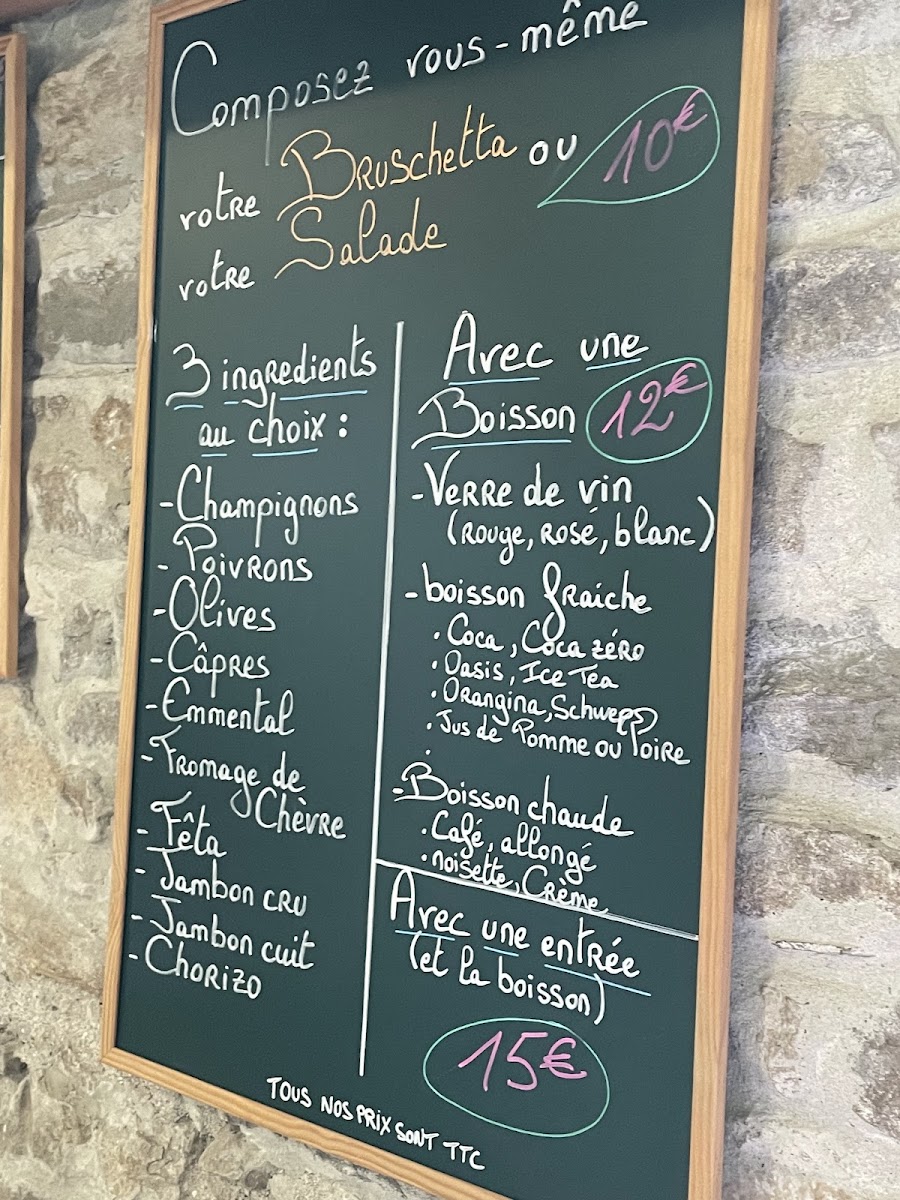 Composez vous-même
votre Bruschetta ou 10€
votre Salade
3 ingredients
au choix :
- Champignons
- Poivrons
- Olives
- Câpres
- Emmental
- Fromage de
Chèvre
- Fêta
- Jambon cru
- Jambon cuit
- Chorizo
Avec une
Boisson 12€
- Verre de vin
(rouge, rosé, blanc)
- boisson fraiche
• Coca, Coca zéro
• Oasis, Ice Tea
• Orangina, Schwepp
• Jus de Pomme ou Poire
•
- Boisson chaude
• Café, allongé
• noisette, Crème
Avec une entrée
(et la boisson)
15€
TOUS NOS PRIX SONT TTC